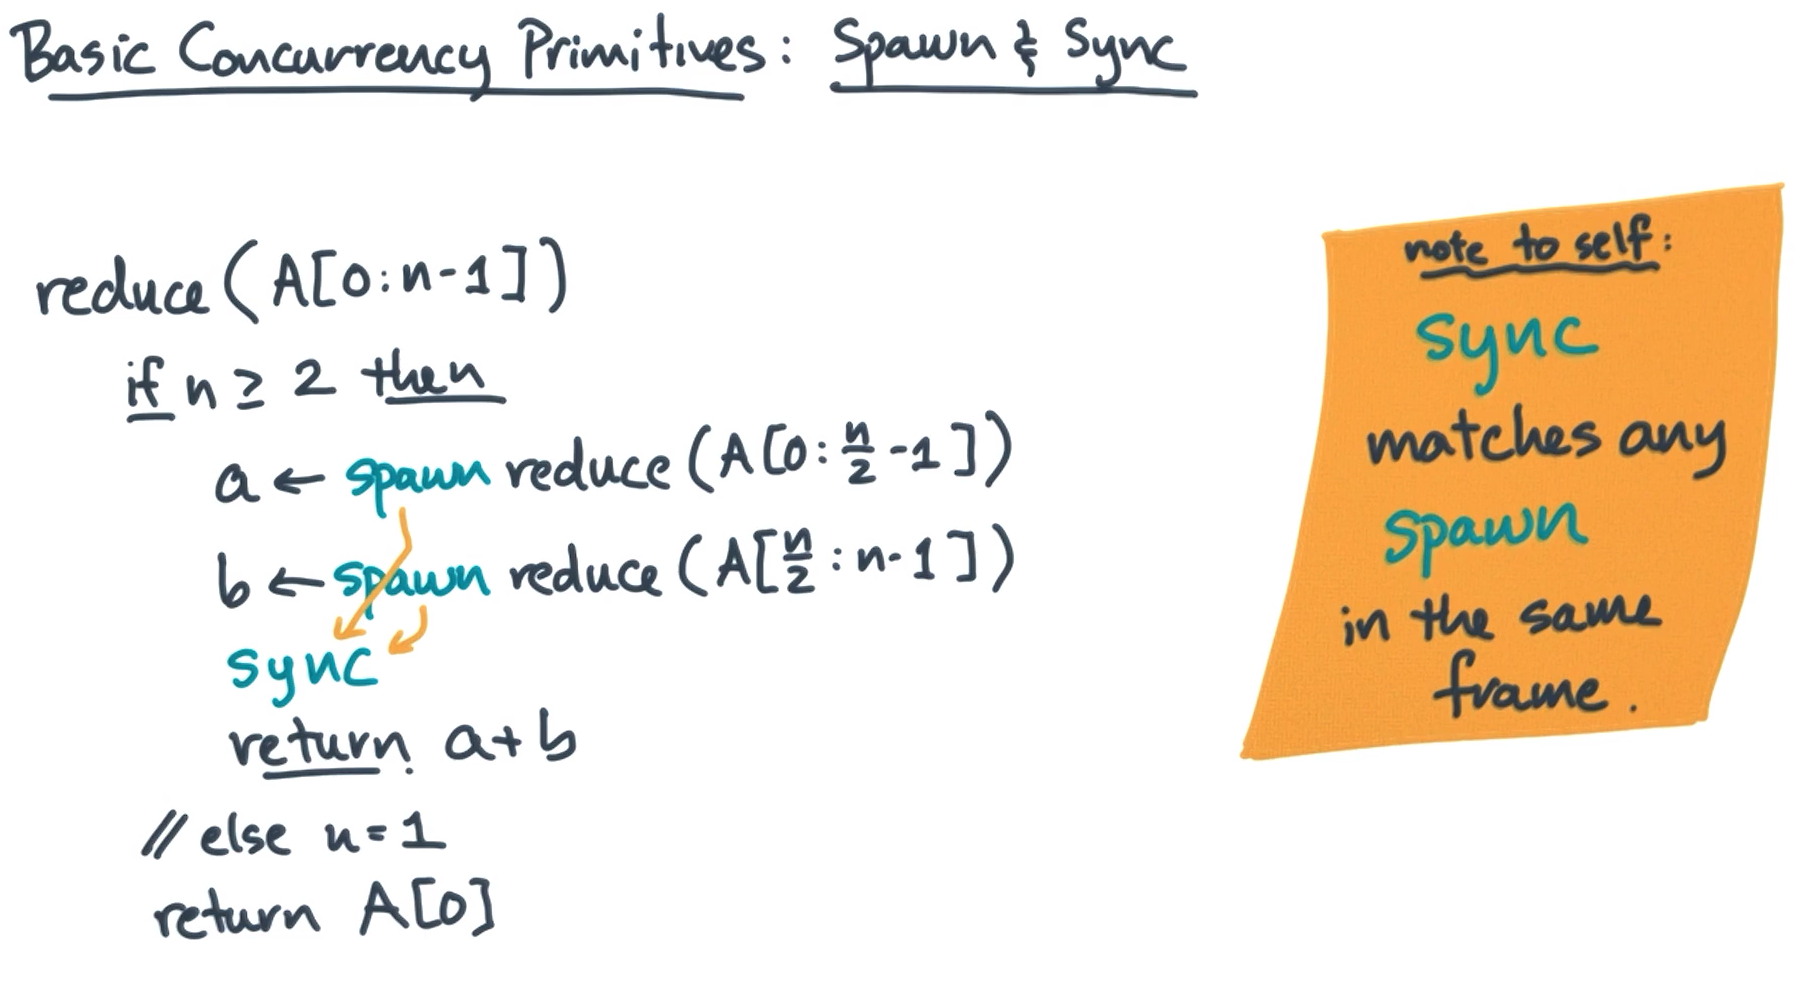 Basic Concurrency Primitives: Spawn & Sync
reduce (A[0:n-1])
if n ≥ 2 then
a ← spawn reduce (A[0:n/2-1])
b ← spawn reduce (A[n/2:n-1])
sync
return a+b
// else n=1
return A[0]
note to self:
sync
matches any
spawn
in the same
frame.